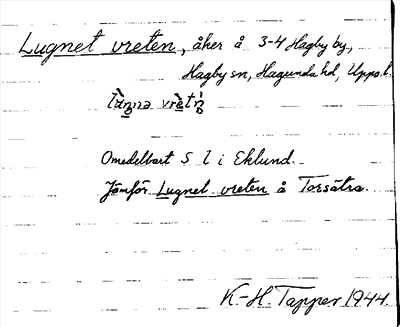 Lugnet vreten, åker å 3-4 Hagby by,
Hagby sn, Hagunda hd, Upps. l.
Omedelbart S l i Eklund.
Jämför Lugnet vreten å Torsätra.
K-H. Tapper 1944.